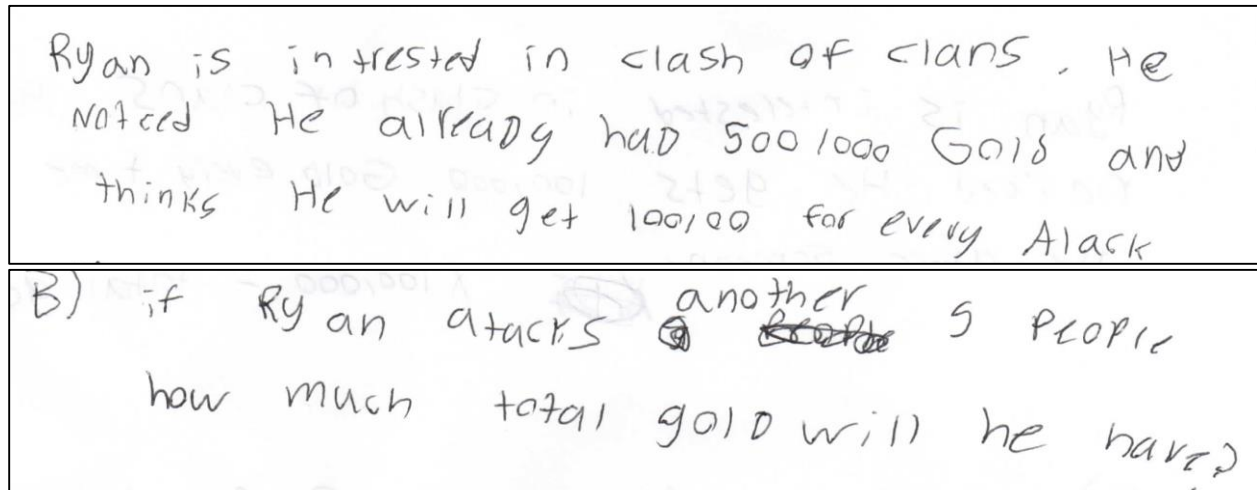 Ryan is intrested in clash of clans. He
Noticed He already had 500,000 Gold and
thinks He will get 100,00 for every Atack
B) if Ryan atacks another 5 People
how much total gold will he have?